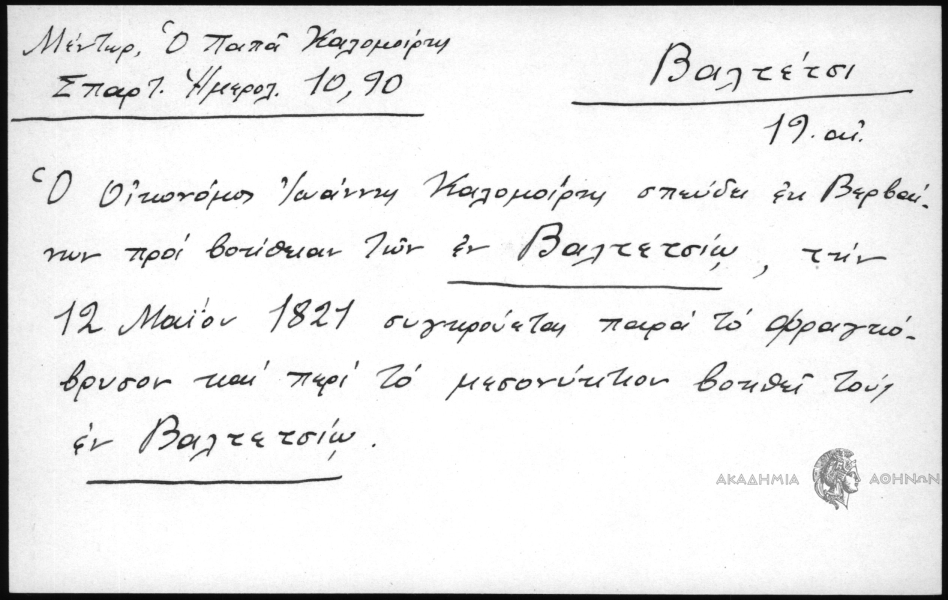 Μέντωρ, Ὁ Παπᾶ Καλομοίρης
Σπαρτ. Ἡμερολ. 10, 90
Βαλτέτσι
19. αἰ.
Ὁ Οἰκονόμος Ἰωάννης Καλομοίρης σπεύδει ἐκ Βερβαί-
νων πρὸς βοήθειαν τῶν ἐν Βαλτετσίῳ, τὴν
12 Μαΐου 1821 συγκρούεται παρὰ τὸ Φραγκό-
βρυσον καὶ περὶ τὸ μεσονύκτιον βοηθεῖ τοὺς
ἐν Βαλτετσίῳ.
ΑΚΑΔΗΜΙΑ ΑΘΗΝΩΝ